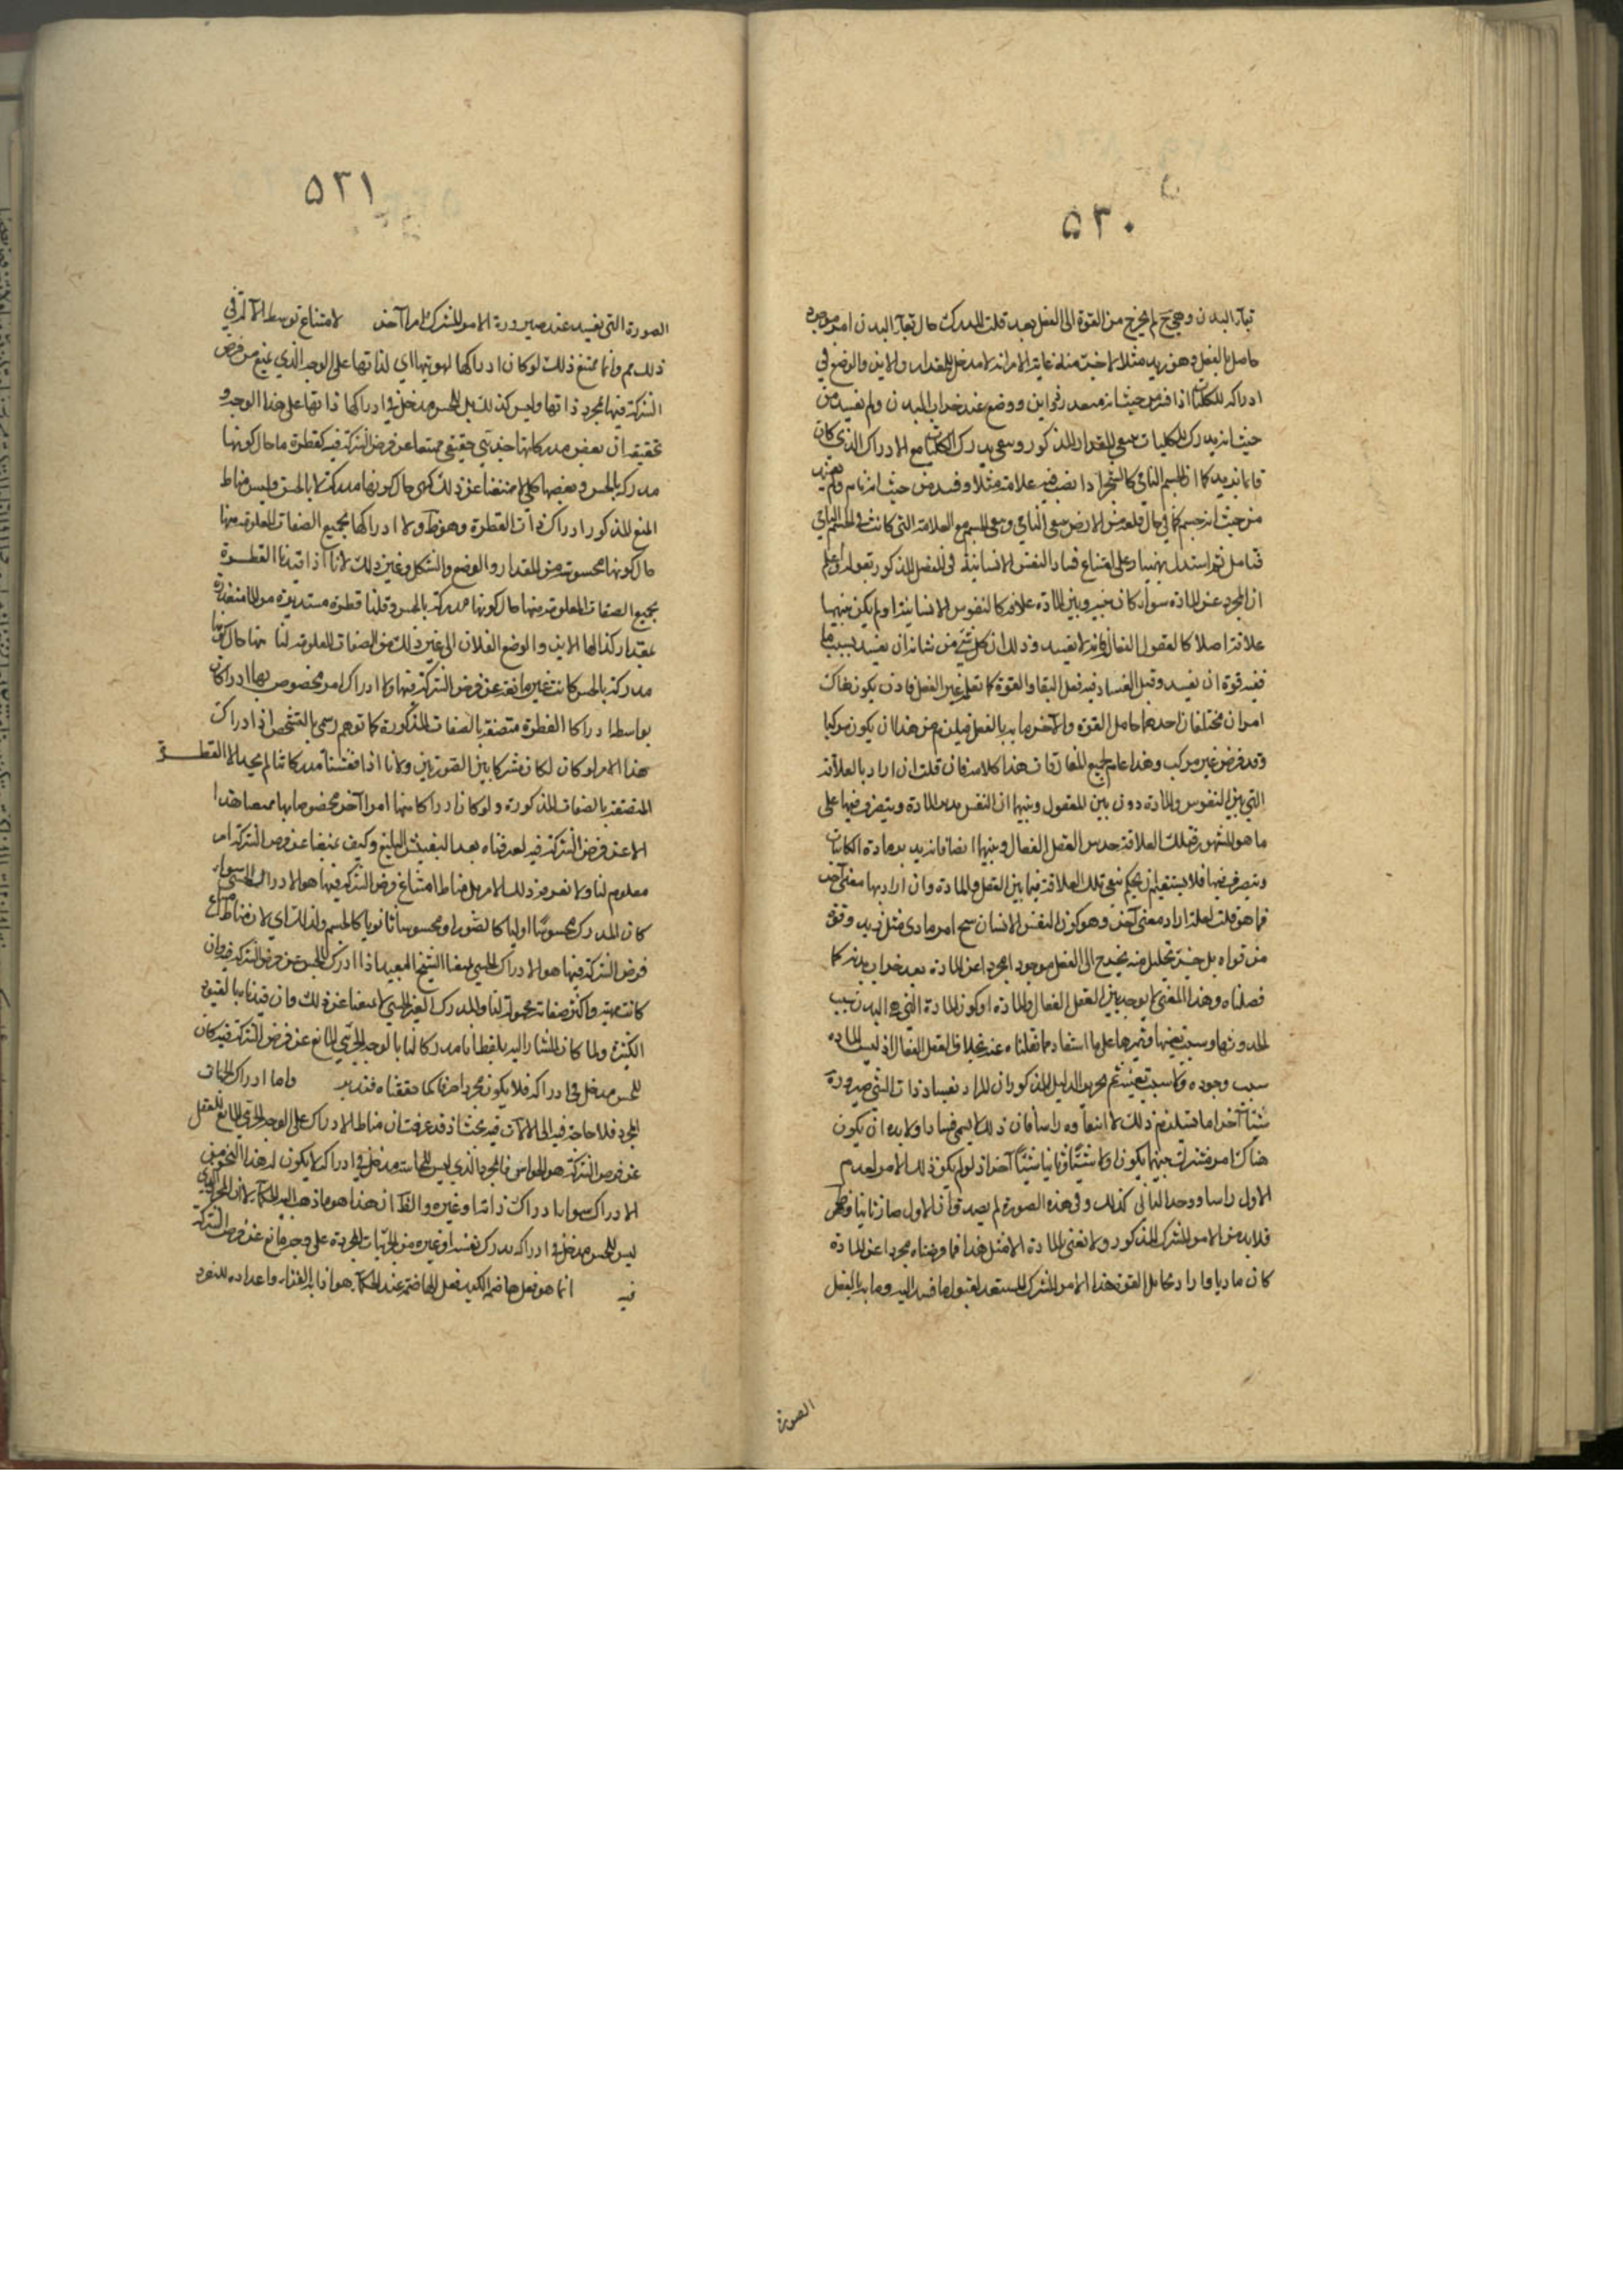 ٥٣٠
بقاء البدن وهي ح لم يخرج من القوة الى الفعل بعد قلت المدرك حال بقاء البدن امر موجود
حاصل بالفعل وهو زيد مثلا لا خبر منه غاية الامر انه لا مدخل للمقدار والاين والوضع في
ادراكه للكليات اذا فسد من حيث انه مقدر في اين ووضع عند خراب البدن ولم يفسد من
حيث انه يدرك الكليات سعى المقدار المذكور وسعى يدرك الكليات مع الادراك الذي كان
قائما بزيد كما ان الجسم النامي كالشجر اذا نصب فيه علامة مثلا وفسد من حيث انه نام ولم يفسد
من حيث انه جسم كما في حال قلعه من الارض سعى النامي وسعى الجسم مع العلامة التي كانت في الجسم النامي
فتامل ثم استدل بهمنيار على امتناع فساد النفس الانسانية في الفصل المذكور بقوله واعلم
ان المجرد عن المادة سواء كان بينه وبين المادة علاقة كالنفوس الانسانية او لم يكن بينهما
علاقة اصلا كالعقول الفعالة فانه لا يفسد وذلك ان كل شيء من شانه ان يفسد بسبب ما
ففيه قوة ان يفسد وقبل الفساد فيه فعل البقاء والقوة كما تعلم غير الفعل فاذن يكون هناك
امران مختلفان احدهما حامل القوة والآخر ما به بالفعل فيلزم من هذا ان يكون مركبا
وقد فرض غير مركب وهذا عام لجميع المفارقات هذا كلامه فان قلت ان اراد بالعلاقة
التي بين النفوس والمادة دون بين العقول وبينها ان النفس يدبر المادة ويتصرف فيها على
ما هو المشهور فتلك العلاقة حدس العقل الفعال وبينها ايضا فانه يدبر مادة الكائنات
ويتصرف فيها فلا يستقيم ان يحكم بنفي تلك العلاقة فيما بين العقل والمادة وان اراد بها معنى آخر
فما هو قلت لعله اراد معنى آخر وهو كون النفس الانسان سح امر مادي مثل زيد وقوة
من قواه بل خبر تحليل منه يخرج الى الفعل موجودا مجردا عن المادة بعد خراب بدنه كما
فصلناه وهذا المعنى لا يوجد بين العقل الفعال والمادة او كون المادة التي هي البدن سبب
لحدوثها وسبب تعينها وتميزها على ما استفاد مما نقلناه عنه بخلاف العقل الفعال اذ ليس المادة
سبب وجوده ولا سبب تعينه ثم تحرير الدليل المذكور ان المراد بفساد ذات الشيء صيرورة
شيئا آخر اما قبيل من ذلك لا انتفاؤه راسا فان ذلك لا يسمى فسادا ولا بد ان يكون
هناك امر مشترك بينهما يكون اولا شيئا وثانيا شيئا آخر اذ لو لم يكن ذلك الامر لعدم
الاول راسا ووجد الثاني كذلك وفي هذه الصورة لم يصدق ان الاول صار ثانيا
فلا بد من الامر المشترك المذكور ولا نعني بالمادة الا مثل هذا فما فرضناه مجردا عن المادة
كان ماديا واراد بحامل القوة هذا الامر المشترك المستعد لقبول ما فسد اليه وما به بالفعل
الصورة
٥٣١
الصورة التي يفسد عند صيرورة الامر المشترك امرا آخر لامتناع توسط الآلة في
ذلك مم وانما يمتنع ذلك لو كان ادراكها لهويتها اي لذاتها على الوجه الذي يمنع من فرض
الشركة فيها بمجرد ذاتها وليس كذلك بل للحس مدخل في ادراكها ذاتها على هذا الوجه و
تحقيقه ان بعض مدركاتها جزئي حقيقي ممتنعا عن فرض الشركة فيه كقطرة ما حال كونها
مدركة بالحس وبعضها كلي لا ممتنعا عن ذلك كهي حال كونها مدركة لا بالحس وليس مناط
المنع المذكور ادراك ذات القطرة وهو ظ ولا ادراكها بجميع الصفات المعلومة منها
حال كونها محسوسة من المقدار والوضع والشكل وغير ذلك لانا اذا قيدنا القطرة
بجميع الصفات المعلومة منها حال كونها مدركة بالحس وقلنا قطرة مستديرة من الماء متقدرة
بمقدار كذا لها الاين والوضع الفلان الى غير ذلك من الصفات المعلومة لنا منها حال كونها
مدركة بالحس كانت غير مانعة عن فرض الشركة فيها ولا ادراك امر مخصوص بها ادراكا
بواسطة ادراك القطرة متصفة بالصفات المذكورة كما توهم وسمي بالتشخص اذ ادراك
هذا الامر لو كان لكان مشتركا بين الصورتين ولانا اذا فتشنا مدركاتنا لم يجد الا القطرة
المتصفة بالصفات المذكورة ولو كان ادراكا منها امرا آخر مخصوصا بها ممتنعا هذا
الا عن فرض الشركة فيه لعرفناه بعد التفتيش البليغ وكيف يمتنعا عن فرض الشركة امر
معلوم لنا ولا نعرف ذلك الامر بل مناط امتناع فرض الشركة فيها هو الادراك الحسي سواء
كان المدرك محسوسا اوليا كالضوء او محسوسا ثانويا كالجسم ولذلك اي لان مناط امتناع
فرض الشركة فيها هو الادراك الحسي يمنعنا الشبح البعيد اذا ادرك بالحس عن فرض الشركة فيه وان
كانت مهيته واكثر صفاته مجهولة لنا والمدرك الغير الحسي لا يمنعنا عن ذلك وان قيدنا بالقيود
الكثيرة ولما كان المشار اليه بلفظ انا مدركا لنا بالوجه الجزئي المانع عن فرض الشركة فيه كان
للحس مدخل في ادراكه فلا يكون مجردا صرفا كما حققناه فتدبر واما ادراك الجزئيات
المجردة فلا حاجة فيه الى الآلات فيه بحث اذ قد عرفت ان مناط الادراك على الوجه الجزئي المانع للعقل
عن فرض الشركة هو الحواس فالمجرد الذي ليس للحاسة مدخل في ادراكه لا يكون له هذا النحو من
الادراك سواء ادراك ذاته او غيره والظ ان هذا هو ما ذهب اليه الحكماء لان المجرد الذي
ليس للحس مدخل في ادراكه يدرك نفسه او غيره من الجزئيات المجردة على وجه مانع عن فرض الشركة
فيه انما هو فعل هاضمة الكبد فعل الهاضمة عند الحكماء هو اذابة الغذاء واعداده للنفوذ